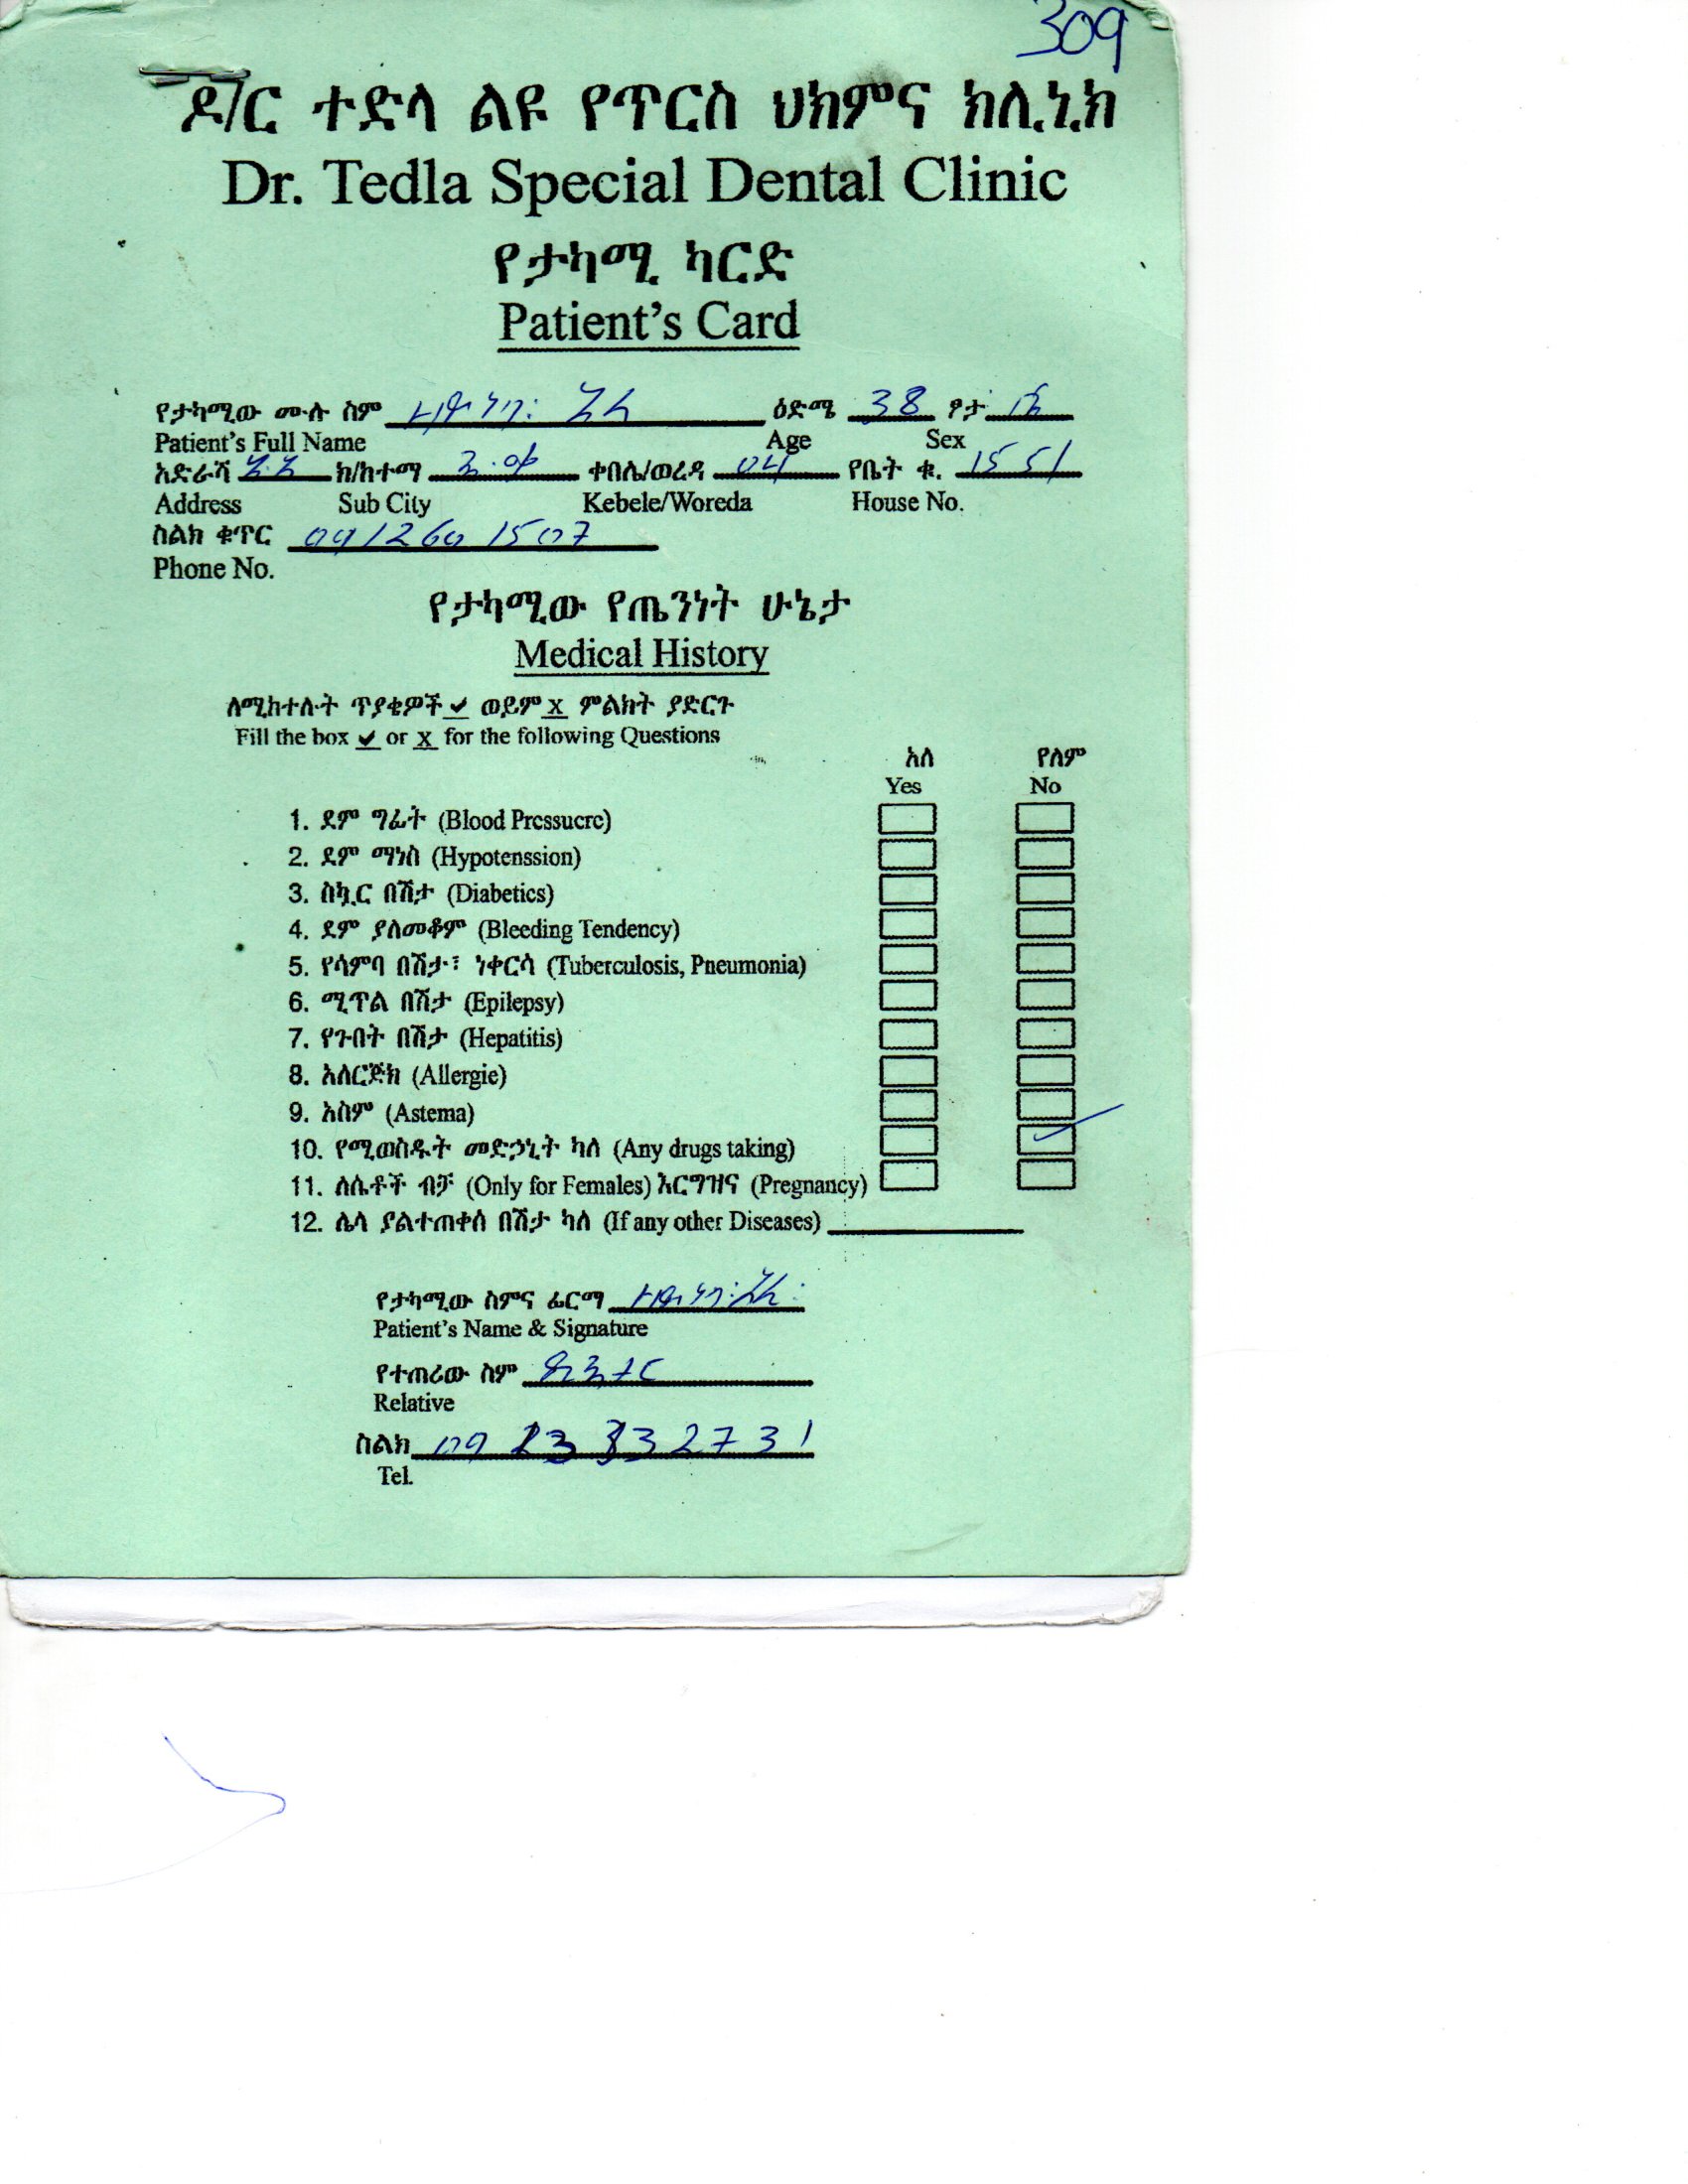 309
ዶ/ር ተድላ ልዩ የጥርስ ህክምና ክሊኒክ
Dr. Tedla Special Dental Clinic
የታካሚ ካርድ
Patient's Card
የታካሚው ሙሉ ስም ዕድሜ 38 ፆታ
Patient's Full Name Age Sex
አድራሻ ክ/ከተማ ቀበሌ/ወረዳ 04 የቤት ቁ. 1551
Address Sub City Kebele/Woreda House No.
ስልክ ቁጥር 0912601507
Phone No.
የታካሚው የጤንነት ሁኔታ
Medical History
ለሚከተሉት ጥያቄዎች ✓ ወይም x ምልክት ያድርጉ
Fill the box ✓ or x for the following Questions
አለ የለም
Yes No
1. ደም ግፊት (Blood Pressucre)
2. ደም ማነስ (Hypotenssion)
3. ስኳር በሽታ (Diabetics)
4. ደም ያለመቆም (Bleeding Tendency)
5. የሳምባ በሽታ፣ ነቀርሳ (Tuberculosis, Pneumonia)
6. ሚጥል በሽታ (Epilepsy)
7. የጉበት በሽታ (Hepatitis)
8. አለርጅክ (Allergie)
9. አስም (Astema)
10. የሚወስዱት መድኃኒት ካለ (Any drugs taking) ✓
11. ለሴቶች ብቻ (Only for Females) እርግዝና (Pregnancy)
12. ሌላ ያልተጠቀሰ በሽታ ካለ (If any other Diseases)
የታካሚው ስምና ፊርማ
Patient's Name & Signature
የተጠሪው ስም
Relative
ስልክ
Tel.